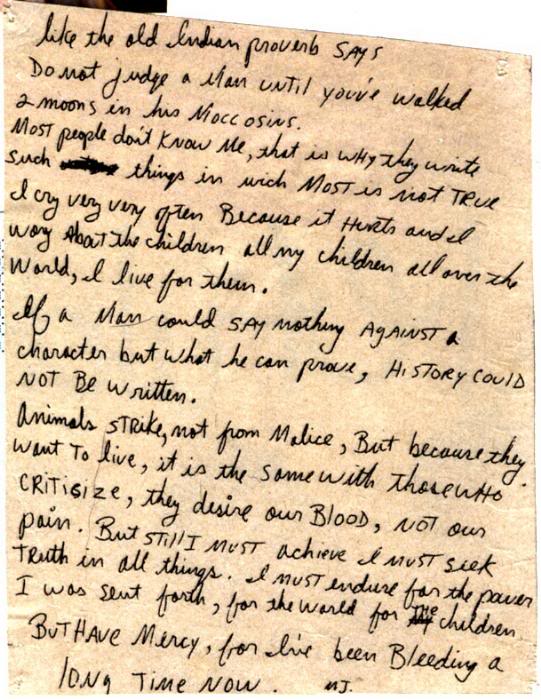 like the old Indian proverb SAYS
Do not judge a Man until you've walked
2 moons in his Moccosins.
MOST people don't KNOW Me, that is WHY they write
such things in wich MOST is not TRUE
I cry very very often Because it Hurts and I
wory About the children all my children all over the
World, I live for them.
If a Man could SAY nothing AGAINST a
character but what he can prove, HISTORY COULD
NOT Be Written.
Animals STRIKE, not from Malice, But because they
want To live, it is the same with those WHO
CRITISIZE, they desire our BLOOD, NOT our
pain. But STILL I MUST achieve I MUST seek
TRUTH in all things. I MUST endure for the power
I was sent forth, for the World for the children
BUT HAVE Mercy, for I've been Bleeding a
long TIME NOW. MJ.